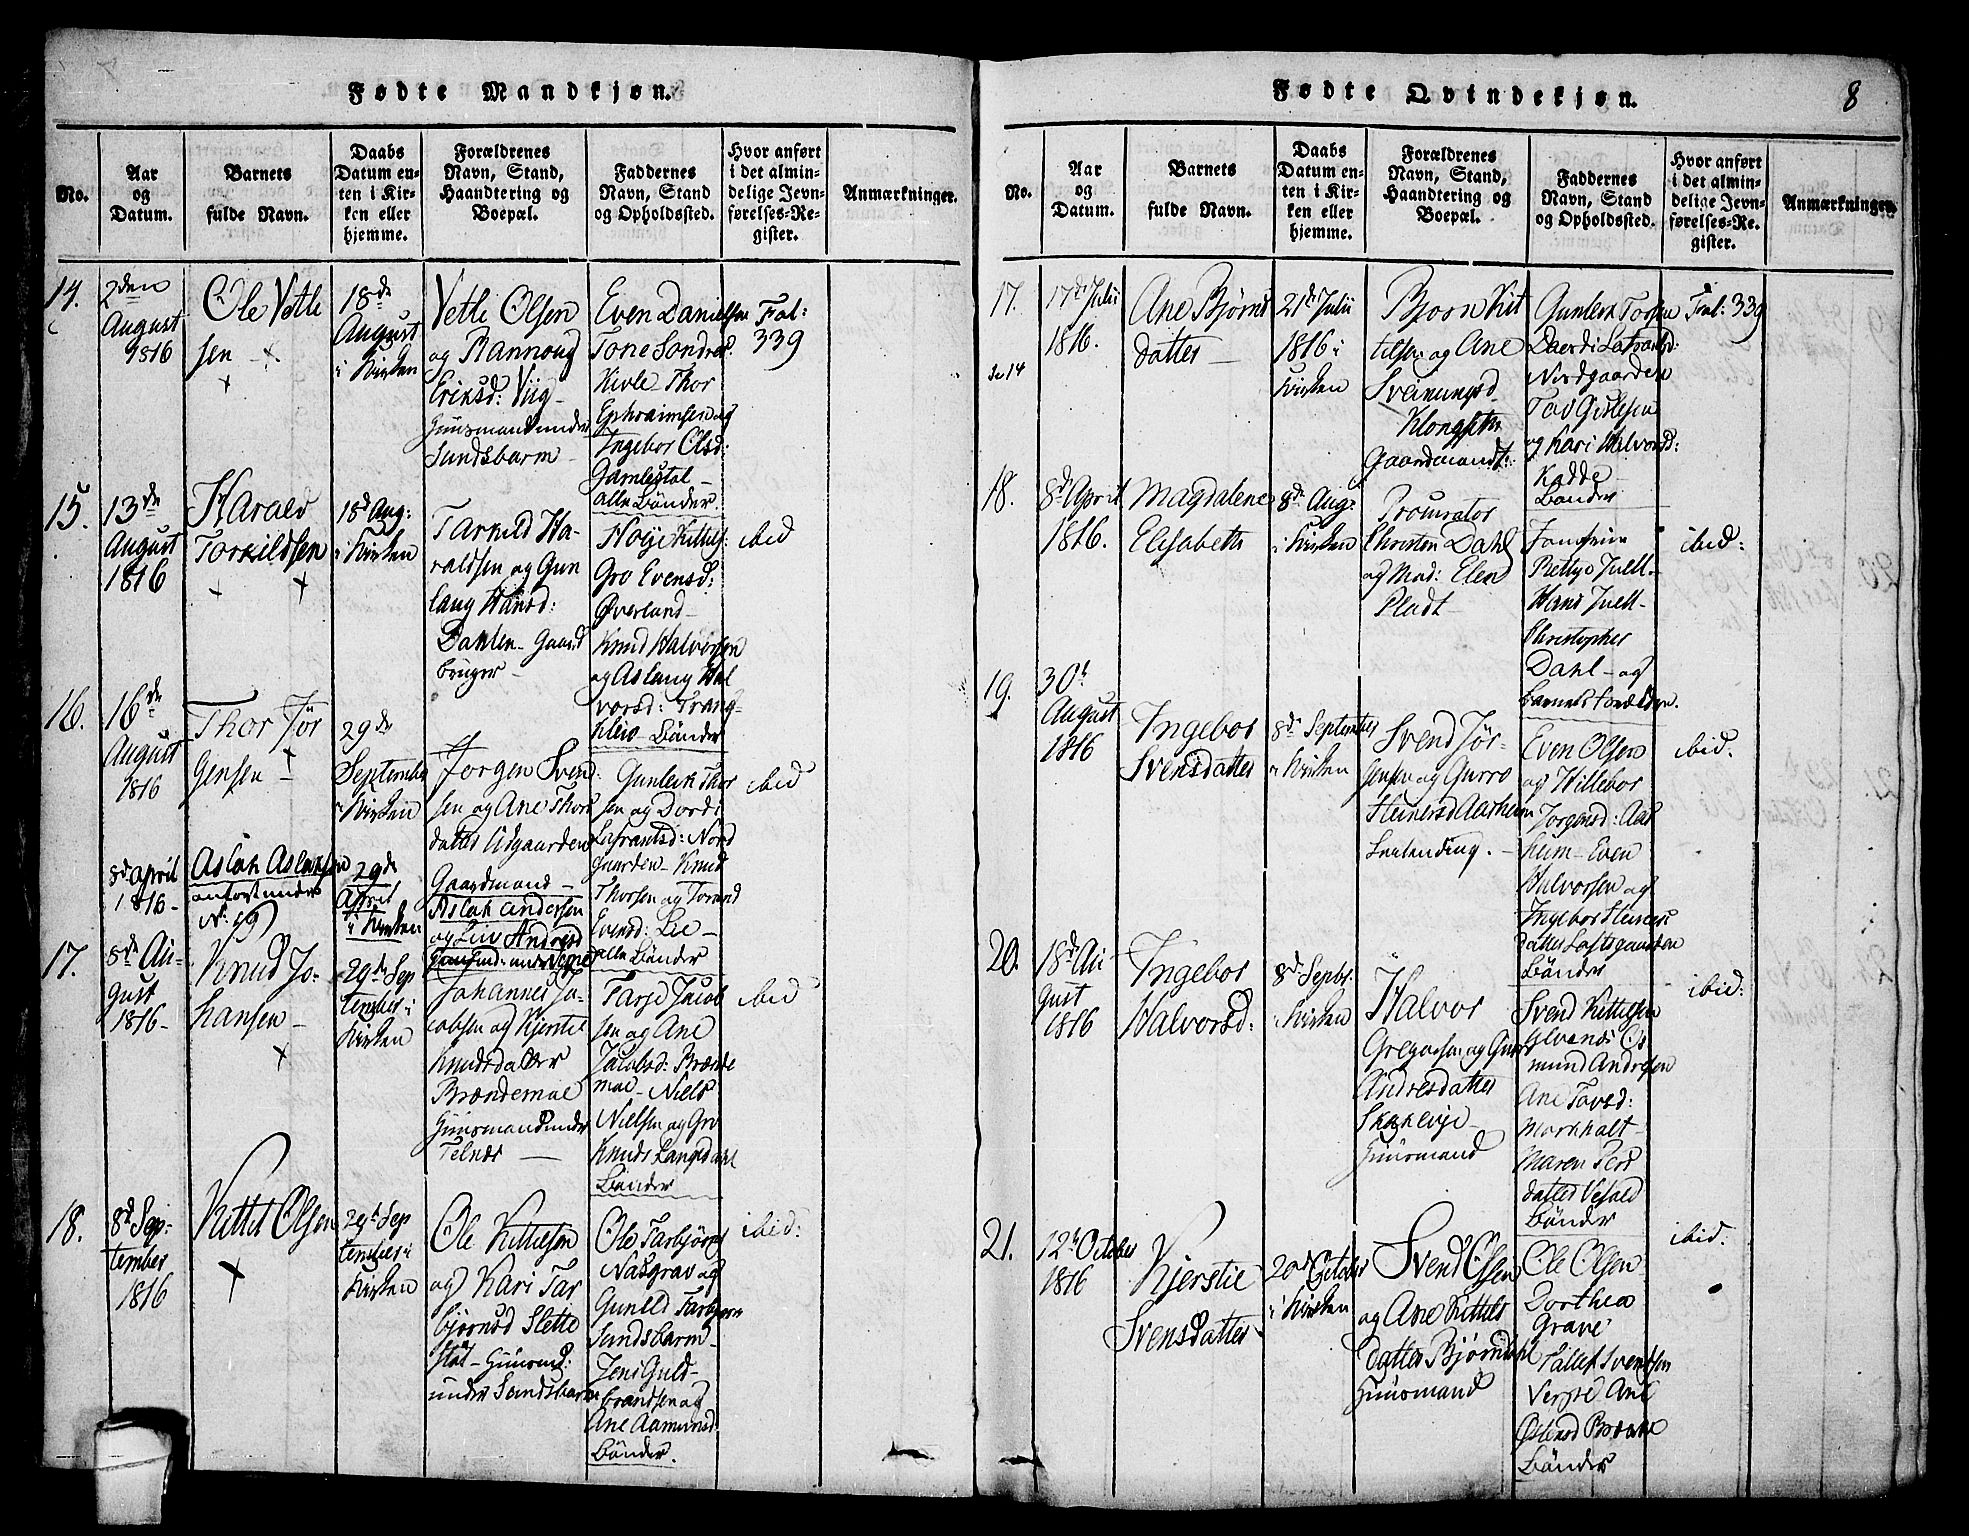 Fødte Mandkjøn.
No.
Aar
og
Datum.
Barnets
fulde Navn.
Daabs
Datum en-
ten i Kir-
ken eller
hjemme.
Forældrenes
Navn, Stand,
Haandtering og
Boepæl.
Faddernes
Navn, Stand
og Opholdssted.
Hvor anført
i det almin-
delige Jevn-
førelses-Re-
gister.
Anmærkninger.
14.
2den
August
1816
Ole Vetle
sen
18de
August
i Kirken
Vetle Olsen
og Rannoug
Eriksd: Viig
Huusmand under
Sundsbarm
Even Danielsen
Tone Sondresd.
Kivle Thor
Ephraimsen og
Ingebor Olsd:
Gamlestøl
alle Bønder.
Fol:
339
15.
13de
August
1816
Harald
Torkildsen
18d Aug:
i Kirken
Tarkild Ha-
raldsen og Gun
laug Hansd:
Dahlen Gaard
bruger
Høye Kittels:
Gro Evensd:
Øverland
Knud Halvorsen
og Aslaug Hal
vorsd:
Bønder
ibid
16.
16de
August
1816
Thor Jør
gensen
29de
September
i Kirken
Jørgen Svend
sen og Ane Thors
datter Udgaarden
Gaardmand
Gunleik Thor
sen og Dordi
Lafrantsd: Nord
gaarden Knud
Thorsen og Torand
Evensd: Lie
alle Bønder
ibid
8d April
1816
Aslak Aslaksen
anført under
N: 19
29de
April
i Kirken
Aslak Andersen
og Liv Andresd
17.
8de Au-
gust
1816
Knud Jo-
hansen
29de Sep
tember i
Kirken
Johannes Ja-
cobsen og Kjersti
Knudsdatter
Brændemoe
Huusmand under
Telnes
Tarje Jacob
sen og Ane
Jacobsd: Brænde
moe Niels
Nielsen og Gro
Knuds Langedahl
Bønder
ibid
18.
8d Sep-
tember
1816
Kittel Olsen
29d Sep
tember i
Kirken
Ole Kittelsen
og Kari Tar
bjørnsd Slette
støl Huusmd:
under Sundsbarm
Ole Tarbjørns
Nasgrav og
Gunild Tarbjørn
Sundsbarm
Jens Guld-
brandsen og
Ane Aamundsd:
Bønder.
ibid:
Fødte Qvindekjøn.
8
No.
Aar
og
Datum.
Barnets
fulde Navn.
Daabs
Datum en-
ten i Kir-
ken eller
hjemme.
Forældrenes
Navn, Stand,
Haandtering og
Boepæl.
Faddernes
Navn, Stand
og Opholdssted.
Hvor anført
i det almin-
delige Jevn-
førelses-Re-
gister.
Anmærkninger.
17.
17d Julii
1816.
Ane Bjørns
datter
21d Julii
1816 i
Kirken
Bjørn Kit
tilsen og Ane
Sveinungsd
Gaardmandf:
Gunleik Torsen
Dordi Lafrantsd:
Nordgaarden
Tov Gislesen
og Kari Halvorsd:
Kodde
Bønder
Fol: 339
18.
8d April
1816.
Magdalene
Elisabeth
8de Aug.
i Kirken
Procurator
Christen Dahl
og Mad: Elen
Pladt
Jomfrue
Juell
Hans Juell
Christopher
Dahl og
Barnets Forældre.
ibid:
19.
30d
August
1816
Ingebor
Svensdatter
8de September
i Kirken
Svend Jør-
gensen og Gurro
Steinersd Aasheim
Even Olsen
og Hillebor
Jørgensd: Aas
heim Even
Halvorsen og
Ingebor Steiners
datter Loftsgaarden
Bønder
ibid.
20.
18d Au
gust
1816
Ingebor
Halvorsd:
8d Septbr.
i Kirken
Halvor
Gregorsen og Gurro
Andresdatter
Huusmand
Svend Kittelsen
mund Andresen
Ane Tovsd:
Maren Pers
datter
Bønder
ibid:
21.
12d October
1816
Kjerstie
Svensdatter
20d October
i Kirken
Svend Olsen
og Ane Kittels
datter Bjørndahl
Huusmand
Ole Olsen
Dorthea
Grave
Tallef Svendsen
Ane
Bønder
ibid.